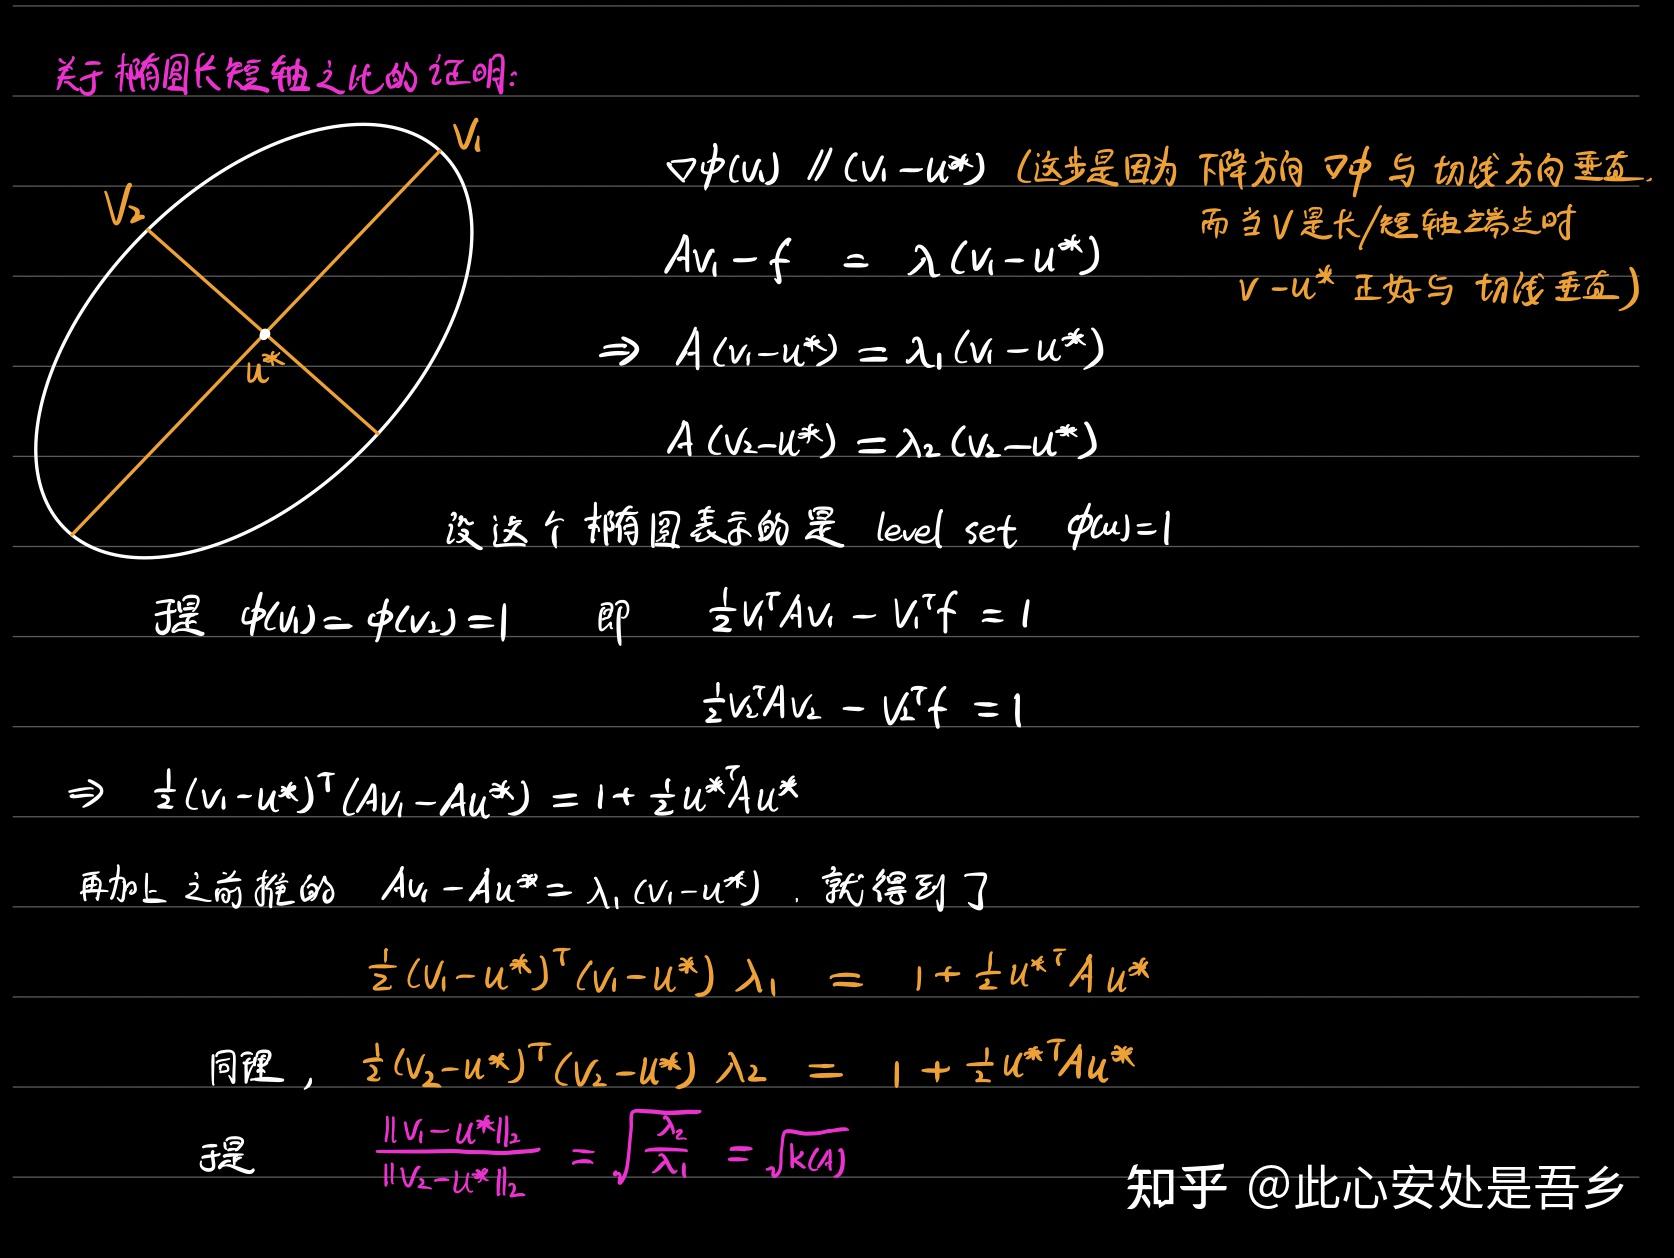 关于椭圆长短轴之比的证明:
V₁
V₂
u*
∇ϕ(v₁) ∥ (v₁-u*) (这步是因为 下降方向 ∇ϕ 与 切线方向垂直.
而当V是长/短轴端点时
v-u* 正好与 切线垂直)
Av₁ - f = λ(v₁-u*)
⇒ A(v₁-u*) = λ₁(v₁-u*)
A(v₂-u*) = λ₂(v₂-u*)
设这个椭圆表示的是 level set ϕ(u)=1
于是 ϕ(v₁) = ϕ(v₂) = 1 即 ½v₁ᵀAv₁ - v₁ᵀf = 1
½v₂ᵀAv₂ - v₂ᵀf = 1
⇒ ½(v₁-u*)ᵀ(Av₁-Au*) = 1 + ½u*ᵀAu*
再加上之前推的 Av₁-Au* = λ₁(v₁-u*). 就得到了
½(v₁-u*)ᵀ(v₁-u*) λ₁ = 1 + ½u*ᵀAu*
同理, ½(v₂-u*)ᵀ(v₂-u*) λ₂ = 1 + ½u*ᵀAu*
于是 ‖v₁-u*‖₂ / ‖v₂-u*‖₂ = √(λ₂/λ₁) = √k(A)
知乎 @此心安处是吾乡